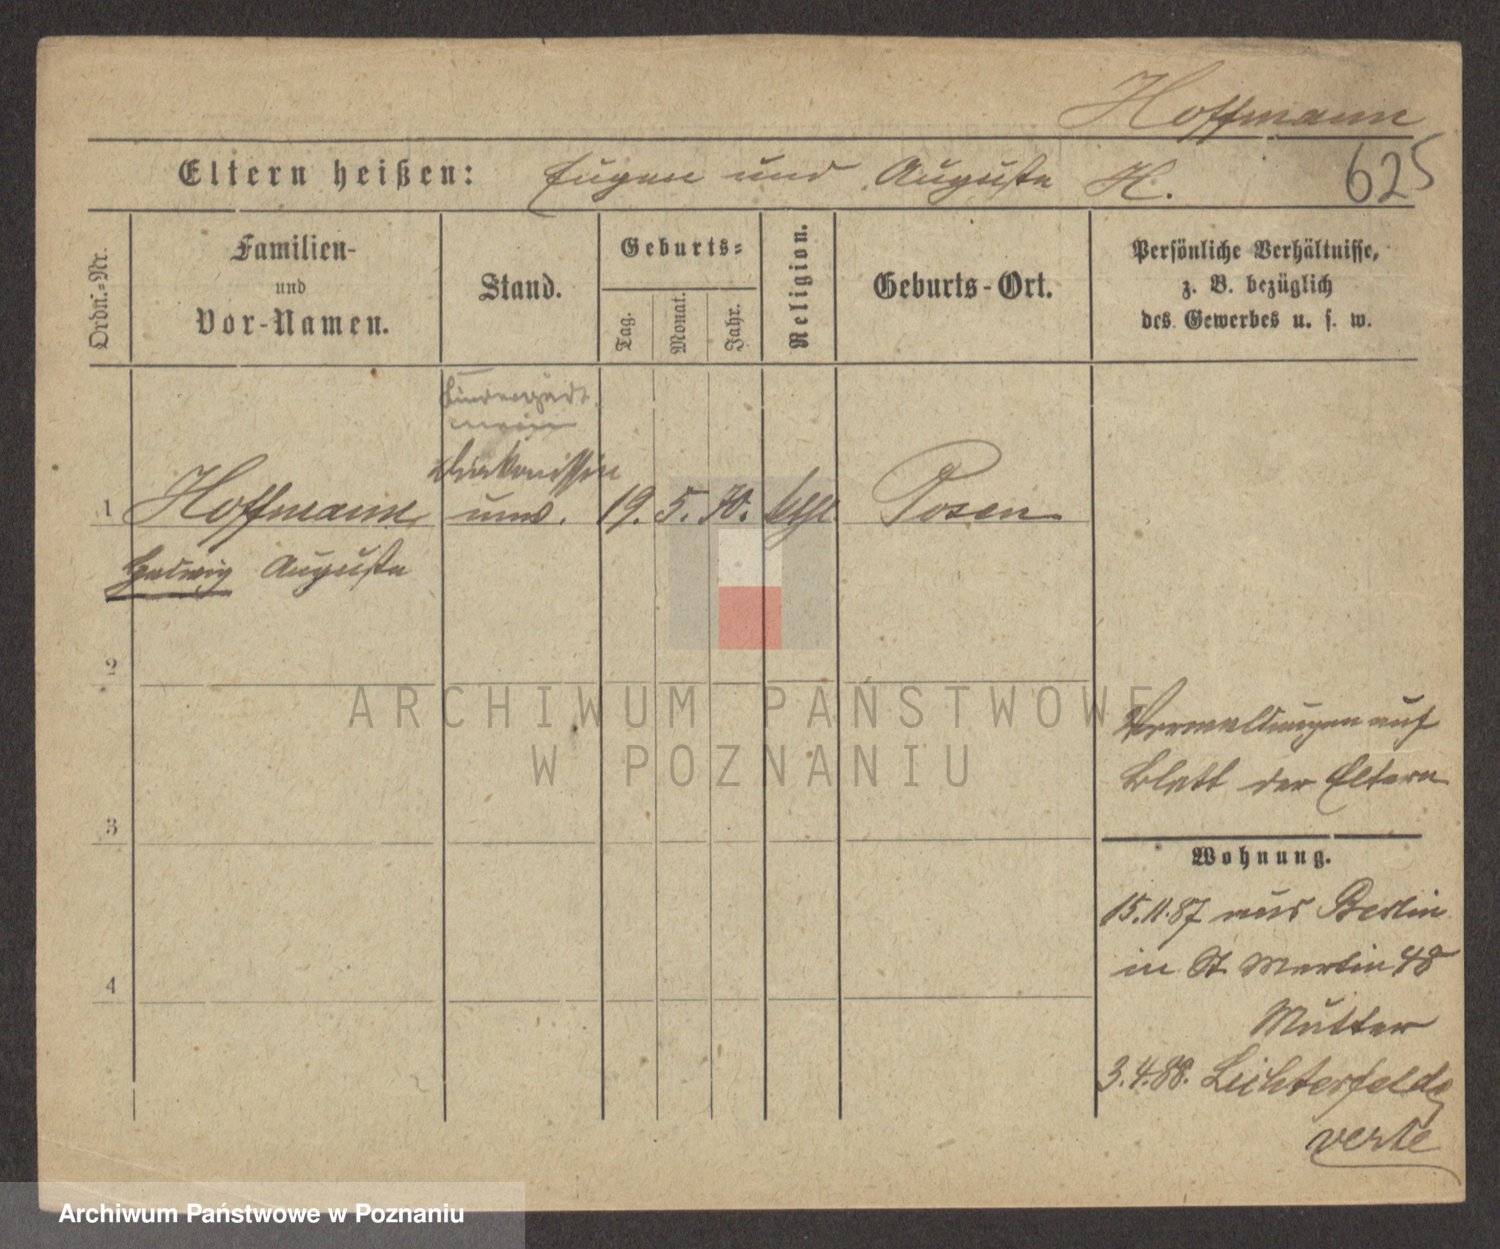 Hoffmann
Eltern heißen: Eugen und Auguste H. 625
Ordn.-Nr.
Familien-
und
Vor-Namen.
Stand.
Geburts-
Tag.
Monat.
Jahr.
Religion.
Geburts-Ort.
Persönliche Verhältnisse,
z. B. bezüglich
des Gewerbes u. s. w.
Diakonissin
1 Hoffmann, unv. 19. 5. 70. Posen
Hedwig Auguste
2
3
4
Vermeldungen auf
Blatt der Eltern
Wohnung.
15.11.87 aus Berlin
in St. Martin 48
Mutter
3.4.88. Lichterfelde
verte
ARCHIWUM PAŃSTWOWE
W POZNANIU
Archiwum Państwowe w Poznaniu